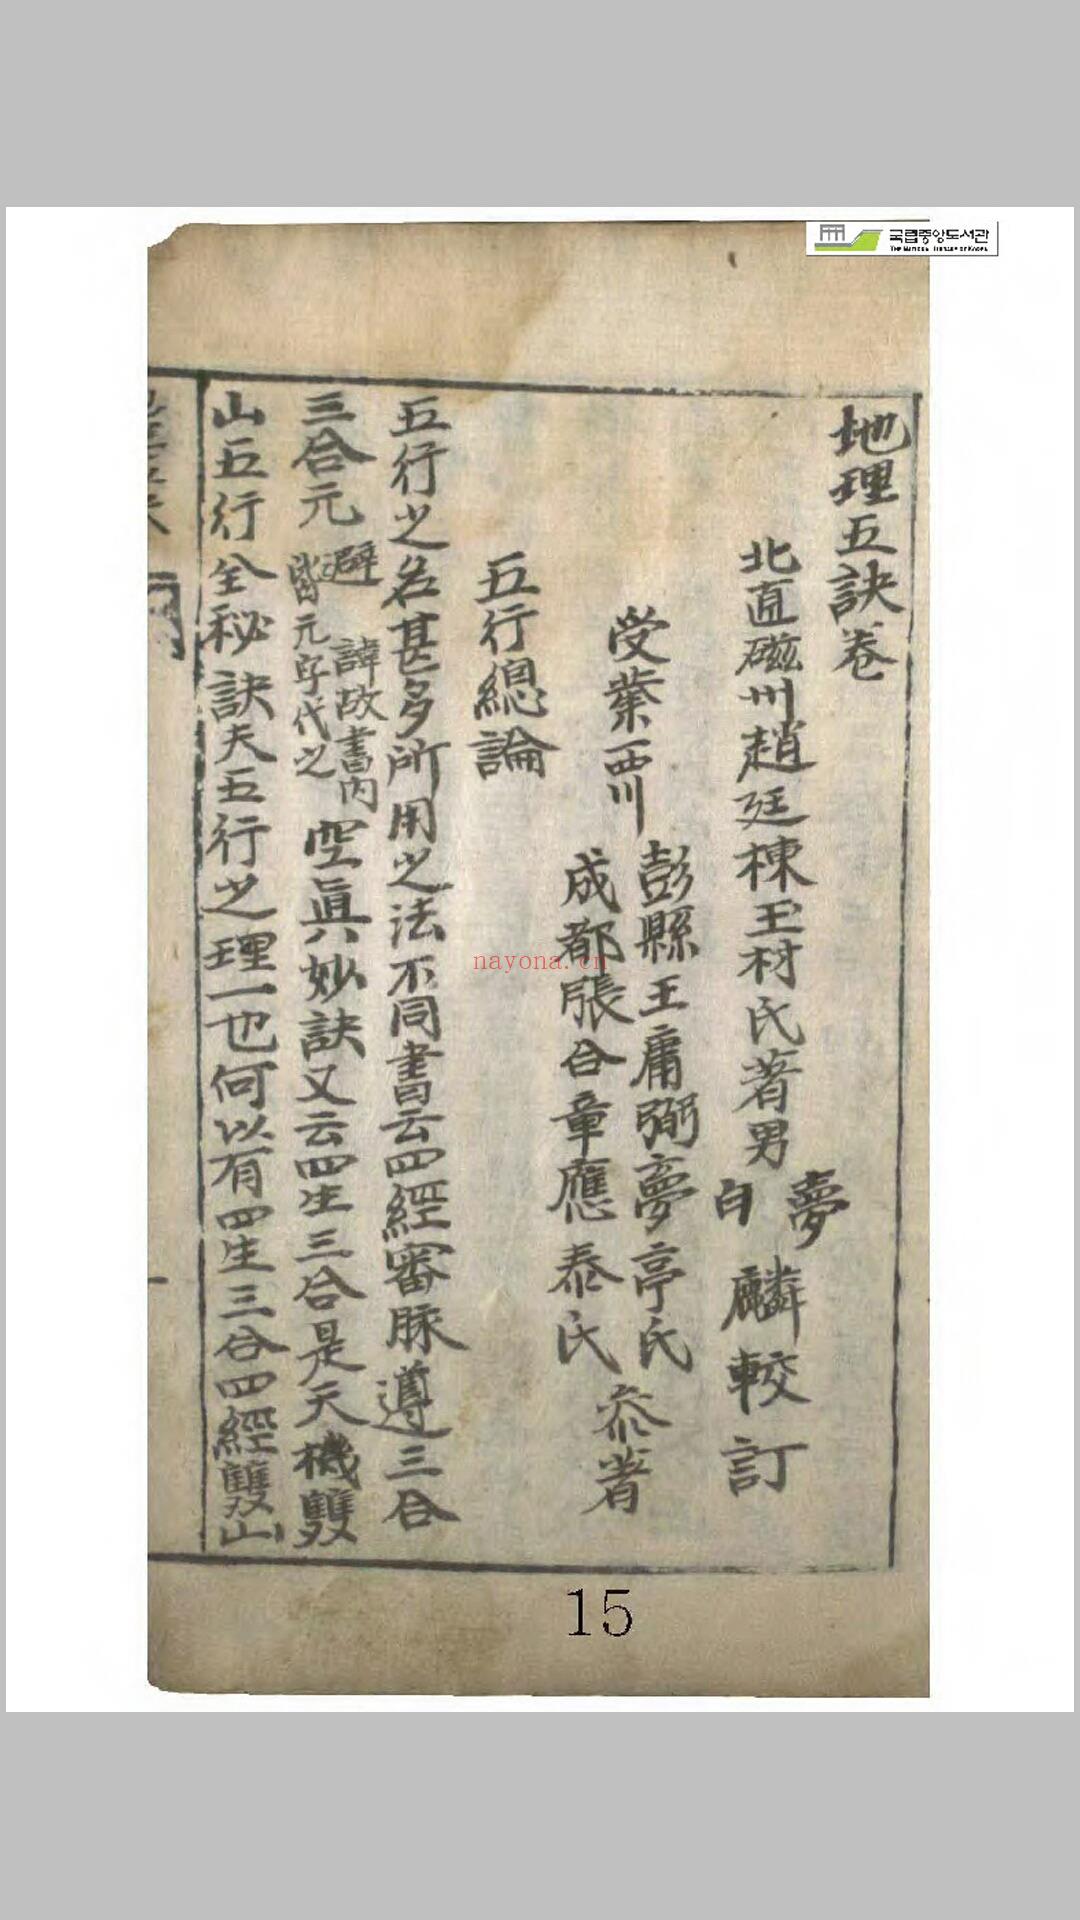 국립중앙도서관
THE NATIONAL LIBRARY OF KOREA
地理五訣卷
北直磁州趙廷棟玉材氏著男
夢
白
麟較訂
受業西川
彭縣王庸弼夢亭氏
成都張含章應泰氏
叅著
五行總論
五行之名甚多所用之法不同書云四經審脉遵三合
三合元
避諱故書内
皆元字代之
空眞妙訣又云四生三合是天機雙
山五行全秘訣夫五行之理一也何以有四生三合四經雙山
nayona.cn
15